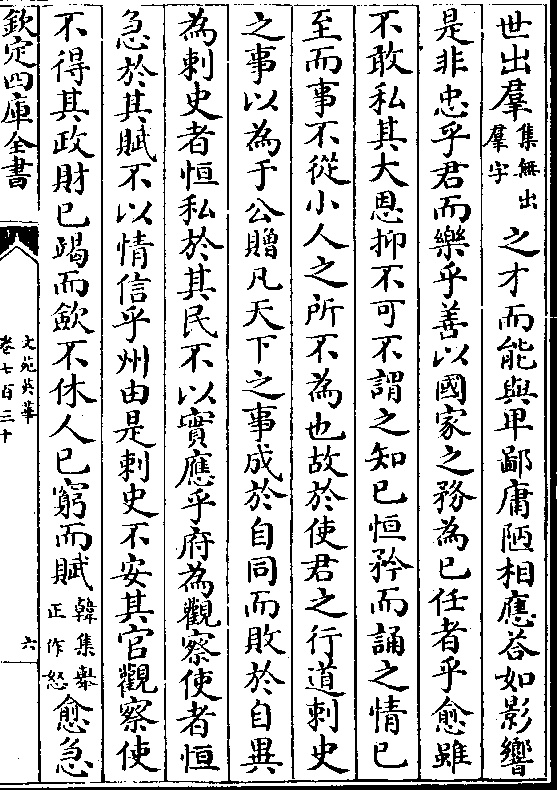 世出羣集無出羣字之才而能與卑鄙庸陋相應荅如影響
是非忠乎君而樂乎善以國家之務為已任者乎愈雖
不敢私其大恩抑不可不謂之知已恒矜而誦之情已
至而事不從小人之所不為也故於使君之行道刺史
之事以為于公贈凡天下之事成於自同而敗於自異
為刺史者恒私於其民不以實應乎府為觀察使者恒
急於其賦不以情信乎州由是刺史不安其官觀察使
不得其政財已竭而歛不休人已窮而賦韓集舉正作怒愈急
欽定四庫全書
文苑英華
卷七百三十
六